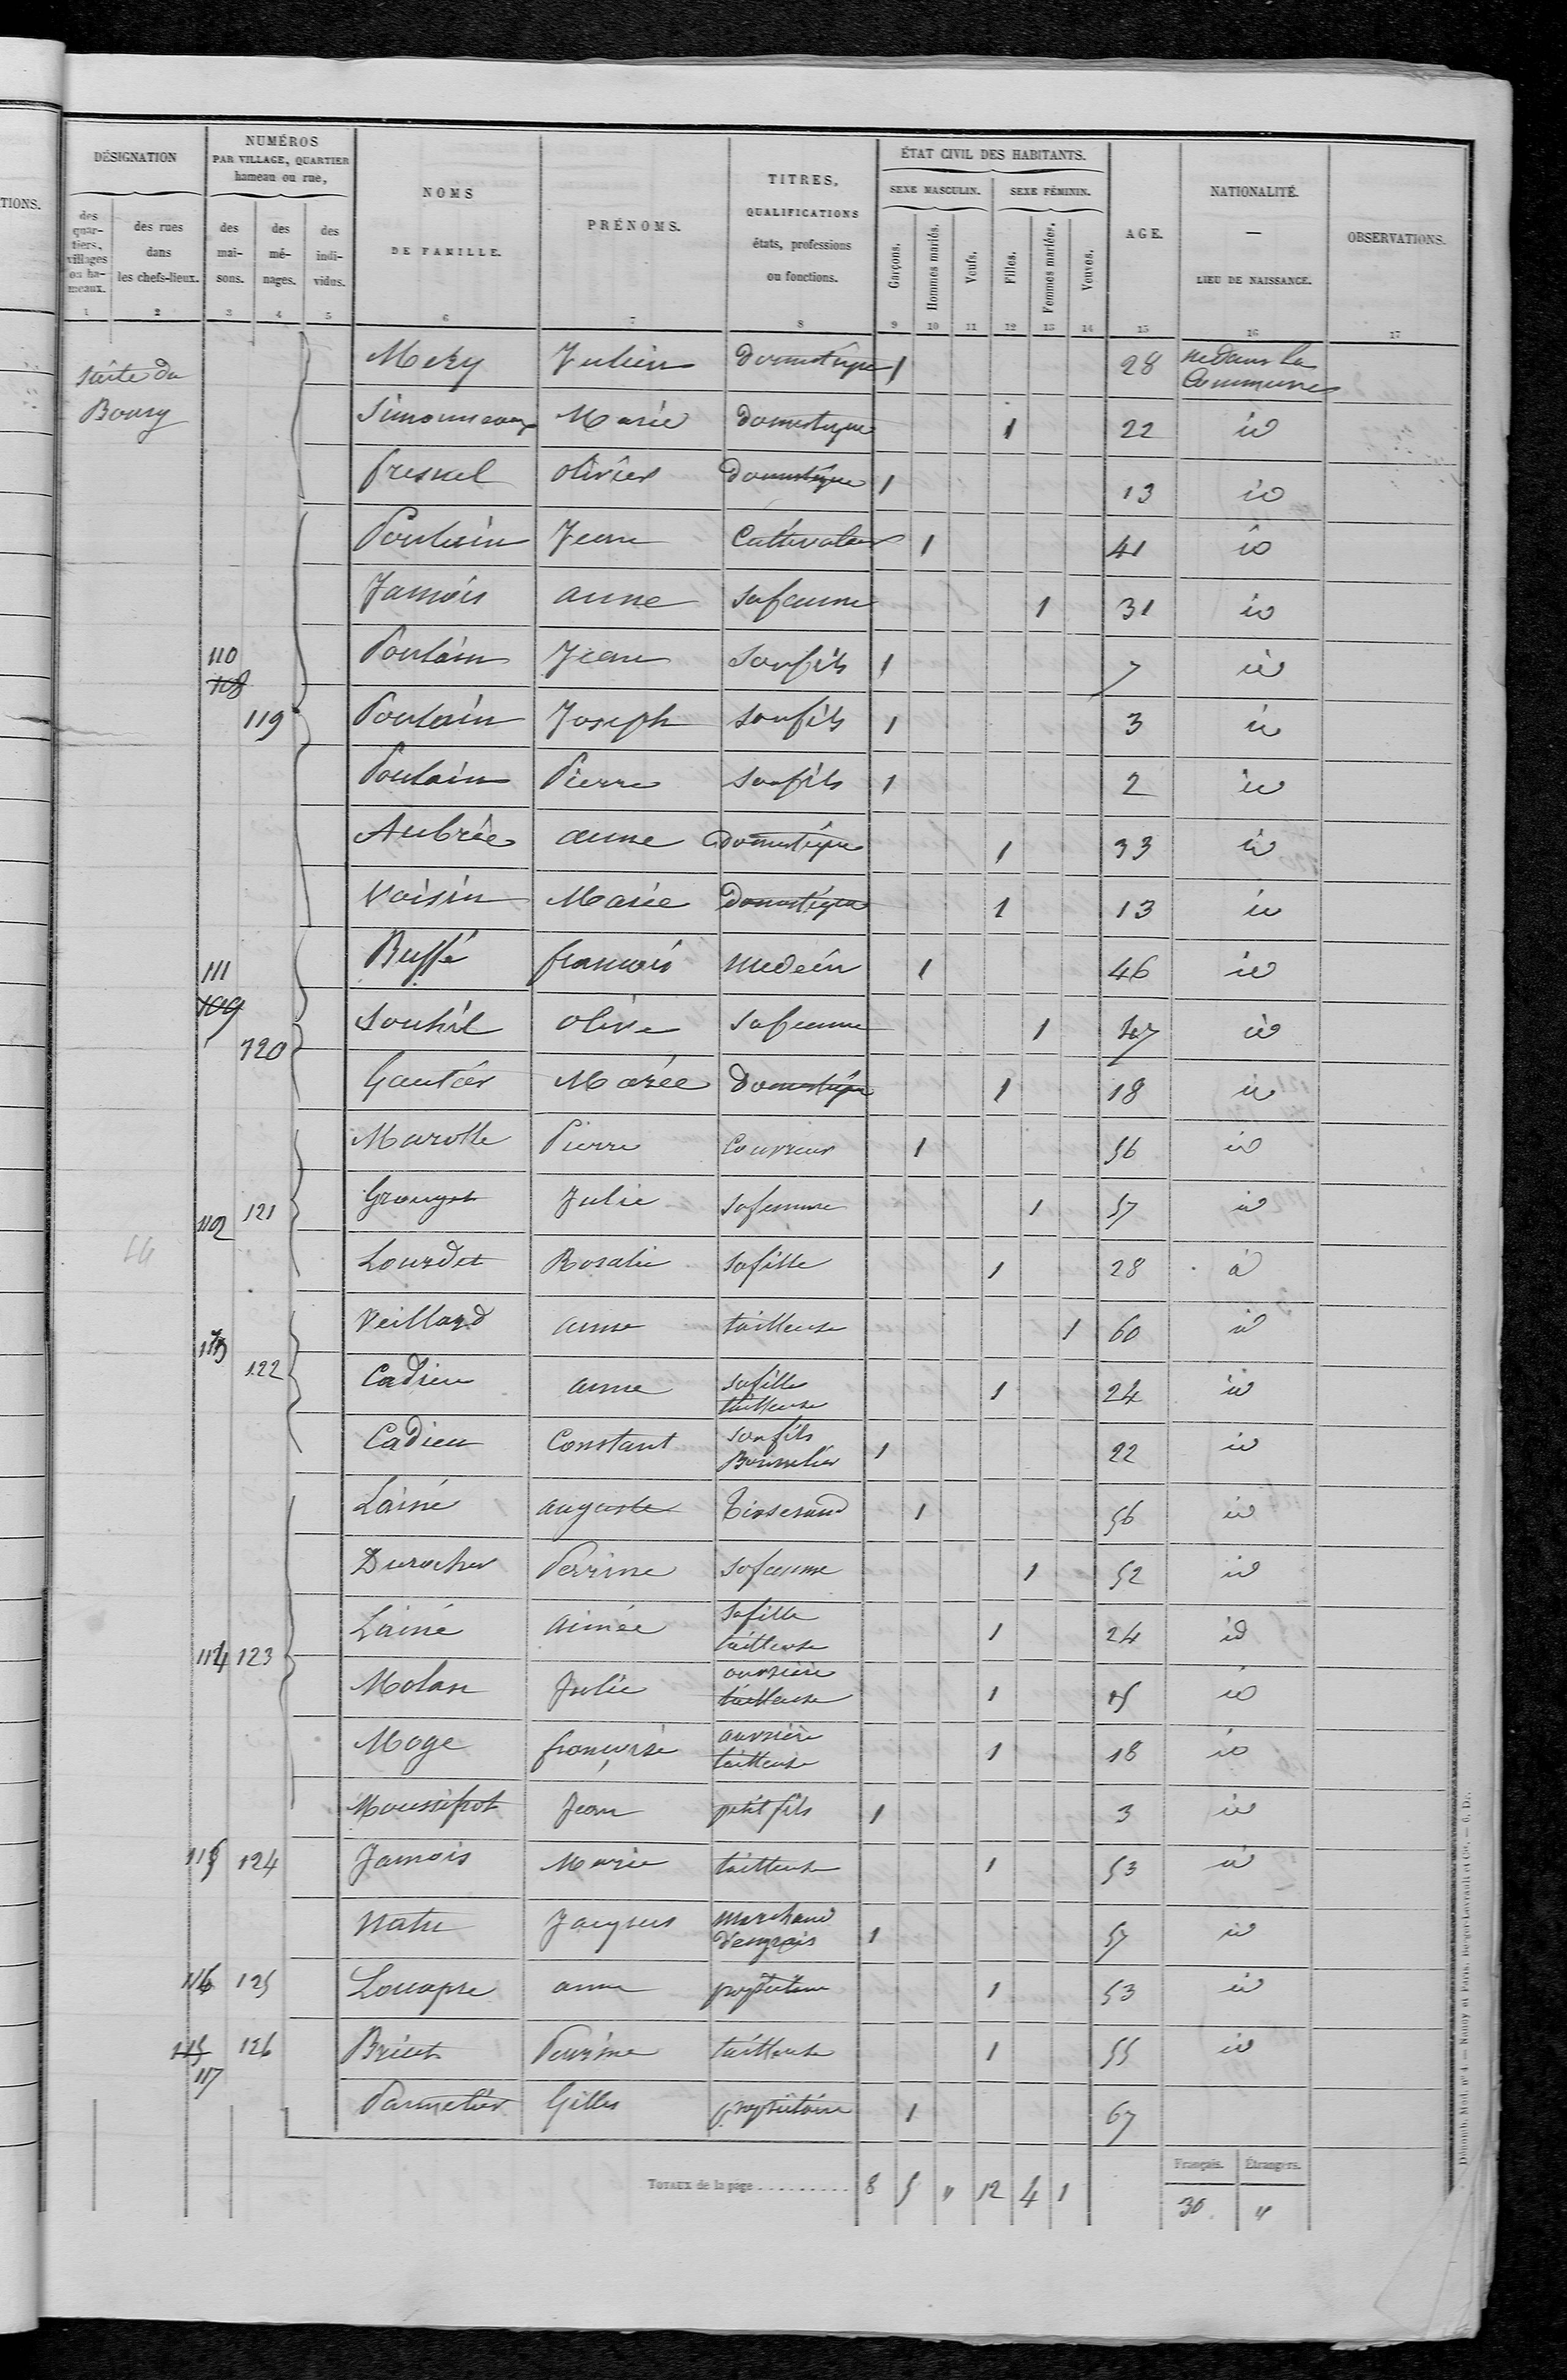 TIONS.
DÉSIGNATION
NUMÉROS
PAR VILLAGE, QUARTIER
hameau ou rue,
NOMS
DE FAMILLE.
PRÉNOMS.
TITRES,
QUALIFICATIONS
états, professions
ou fonctions.
ÉTAT CIVIL DES HABITANTS.
SEXE MASCULIN.
SEXE FÉMININ.
AGE.
NATIONALITÉ.
—
LIEU DE NAISSANCE.
OBSERVATIONS.
des quar-tiers, villages ou ha-meaux.
des rues dans les chefs-lieux.
des mai-sons.
des mé-nages.
des indi-vidus.
Garçons.
Hommes mariés.
Veufs.
Filles.
Femmes mariées.
Veuves.
1 2 3 4 5 6 7 8 9 10 11 12 13 14 15 16 17
suite du
Bourg
Mery Julien domestique 1 28 né dans la Commune
Simonneaux Marie domestique 1 22 id
fresnel olivier domestique 1 13 id
Poulain Jean Cultivateur 1 41 id
Jamois anne sa femme 1 31 id
110 108 Poulain Jean son fils 1 7 id
119 Poulain Joseph son fils 1 3 id
Poulain Pierre son fils 1 2 id
Aubrée anne domestique 1 33 id
Voisin Marie domestique 1 13 id
111 109 Buffé francois medecin 1 46 id
120 Souhil olive sa femme 1 47 id
Gautier Marie domestique 1 18 id
Marolle Pierre Couvreur 1 56 id
112 121 Grouget Julie sa femme 1 57 id
Lourdet Rosalie sa fille 1 28 id
113 Veillard anne tailleuse 1 60 id
122 Cadieu anne sa fille tailleuse 1 24 id
Cadieu Constant son fils Bourrelier 1 22 id
Lainé auguste Tisserand 1 56 id
Durocher Perrine sa femme 1 52 id
114 123 Lainé aimée sa fille tailleuse 1 24 id
Molan Julie ouvrière tailleuse 1 15 id
Moge françoise ouvrière tailleuse 1 18 id
Moussifrot Jean petit fils 1 3 id
115 124 Jamois Marie tailleuse 1 53 id
Jacques marchand d'engrais 1 57 id
116 125 Louapre anne propriétaire 1 53 id
115 117 126 Bricet Perrine tailleuse 1 55 id
Parmetier Gilles propriétaire 1 67
TOTAUX de la page 8 5 " 12 4 1
Français. Étrangers.
30. "